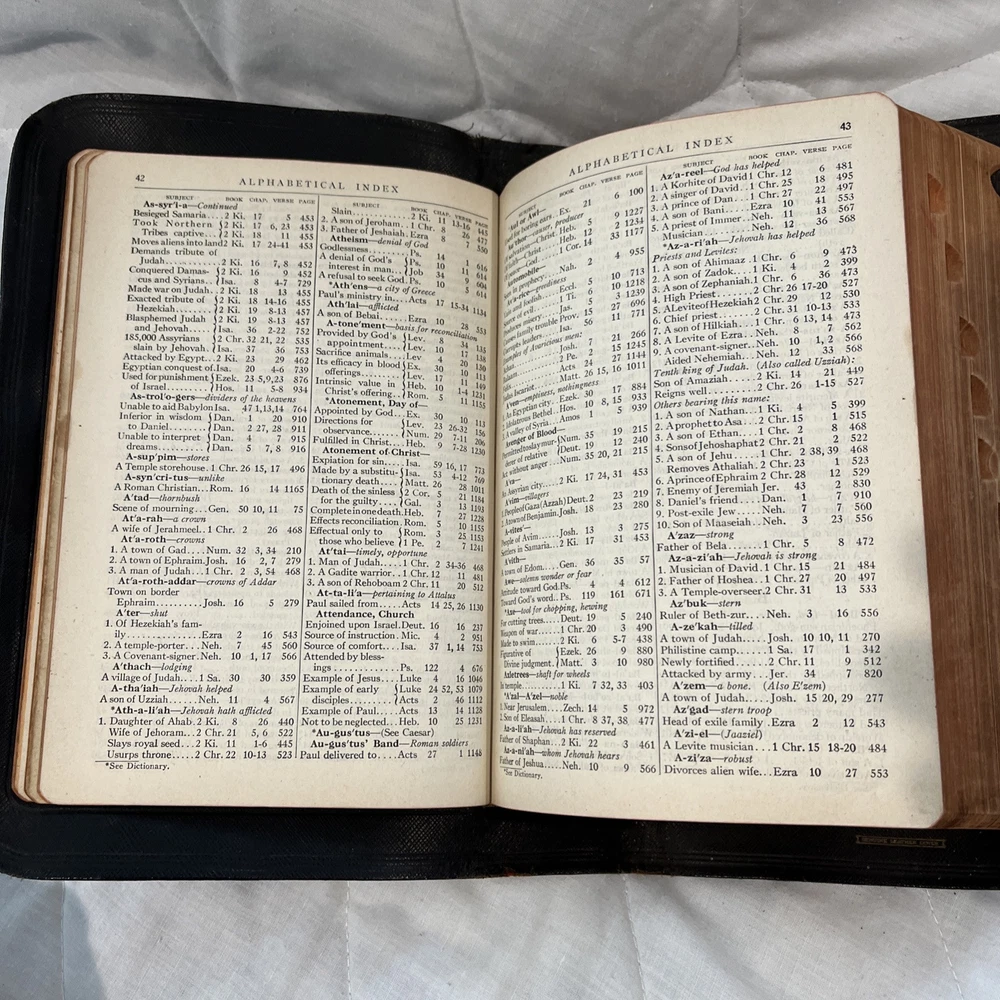 42
ALPHABETICAL INDEX
SUBJECT BOOK CHAP. VERSE PAGE
As-syr'i-a—Continued
Besieged Samaria....2 Ki. 17 5 453
Took Northern {2 Ki. 17 6, 23 453
Tribes captive...{2 Ki. 18 11 455
Moves aliens into land 2 Ki. 17 24-41 453
Demands tribute of
Judah..........2 Ki. 16 7, 8 452
Conquered Damas-{2 Ki. 16 9 452
cus and Syrians.{Isa. 8 4-7 729
Made war on Judah.2 Ki. 18 13 455
Exacted tribute of {2 Ki. 18 14-16 455
Hezekiah........{2 Ki. 19 8-13 457
Blasphemed Judah {2 Ki. 19 8-13 457
and Jehovah.....{Isa. 36 2-22 752
185,000 Assyrians {2 Chr. 32 21, 22 535
slain by Jehovah.{Isa. 37 36 753
Attacked by Egypt..2 Ki. 23 29 462
Egyptian conquest of.Isa. 20 4-6 739
Used for punishment {Ezek. 23 5,9,23 876
of Israel.........{Hos. 11 5-8 934
As-trol'o-gers—dividers of the heavens
Unable to aid Babylon Isa. 47 1,13,14 764
Inferior in wisdom {Dan. 1 20 910
to Daniel.........{Dan. 2 27, 28 911
Unable to interpret {Dan. 4 7 915
dreams..........{Dan. 5 7, 8 916
A-sup'pim—stores
A Temple storehouse.1 Chr. 26 15, 17 496
A-syn'cri-tus—unlike
A Roman Christian...Rom. 16 14 1165
A'tad—thornbush
Scene of mourning...Gen. 50 10, 11 75
At'a-rah—a crown
A wife of Jerahmeel..1 Chr. 2 26 468
At'a-roth—crowns
1. A town of Gad....Num. 32 3, 34 210
2. A town of Ephraim.Josh. 16 2, 7 279
3. A man of Judah...1 Chr. 2 3, 54 468
At'a-roth-addar—crowns of Addar
Town on border
Ephraim..........Josh. 16 5 279
A'ter—shut
1. Of Hezekiah's fam-
ily...............Ezra 2 16 543
2. A temple-porter...Neh. 7 45 560
3. A Covenant-signer.Neh. 10 1, 17 566
A'thach—lodging
A village of Judah...1 Sa. 30 30 359
A-tha'iah—Jehovah helped
A son of Uzziah.....Neh. 11 4 567
*Ath-a-li'ah—Jehovah hath afflicted
1. Daughter of Ahab.2 Ki. 8 26 440
Wife of Jehoram...2 Chr. 21 5, 6 522
Slays royal seed...2 Ki. 11 1-6 445
Usurps throne....2 Chr. 22 10-13 523
*See Dictionary.
SUBJECT BOOK CHAP. VERSE PAGE
Slain.............2 Ki. 11 13-16
2. A son of Jeroham..1 Chr. 8
3. Father of Jeshaiah.Ezra 8 7 550
Atheism—denial of God
Godlessness.........Ps. 14 1 616
A denial of God's {Ps. 10 4 614
interest in man...{Job 34 9 604
A refusal to seek God.Ps. 10 4 614
*Ath'ens—a city of Greece
Paul's ministry in...Acts 17 15-34 1134
Ath'lai—afflicted
A son of Bebai......Ezra 10 28 553
A-tone'ment—basis for reconciliation
Provided by God's {Lev. 8
appointment....{Lev. 10 17
Sacrifice animals.....Lev. 4 20
Its efficacy in blood {Ex. 30 10 113
offerings.........{Lev. 17 11
Intrinsic value in {Heb. 9
Christ's offering..{Rom. 5 1-4
*Atonement, Day of—
Appointed by God...Ex. 30 10 113
Directions for {Lev. 23 26-32 156
observance......{Num. 29 7-11 206
Fulfilled in Christ...Heb. 9 7-28 1230
Atonement of Christ—
Expiation for sin....Isa. 59 16, 17 773
Made by a substitu-{Isa. 53 4-12 769
tionary death....{Matt. 26 28 1011
Death of the sinless {2 Cor. 5 21 1184
for the guilty.....{Gal. 3 13 1193
Complete in one death.Heb. 7 27 1228
Effects reconciliation.Rom. 5 10 1155
Effectual only to {Rom. 3 25 1153
those who believe {1 Pe. 2 7 1241
At'tai—timely, opportune
1. Man of Judah....1 Chr. 2 34-36 468
2. A Gadite warrior..1 Chr. 12 11 481
3. A son of Rehoboam 2 Chr. 11 20 512
At-ta-li'a—pertaining to Attalus
Paul sailed from.....Acts 14 25, 26 1130
Attendance, Church
Enjoined upon Israel.Deut. 16 16 237
Source of instruction.Mic. 4 2 951
Source of comfort....Isa. 37 1, 14 753
Attended by bless-
ings..............Ps. 122 4 676
Example of Jesus....Luke 4 16 1046
Example of early {Luke 24 52, 53 1079
disciples.........{Acts 2 46 1112
Example of Paul....Acts 13 14 1128
Not to be neglected..Heb. 10 25 1231
*Au-gus'tus—(See Caesar)
Au-gus'tus' Band—Roman soldiers
Paul delivered to....Acts 27 1 1148
ALPHABETICAL INDEX
43
SUBJECT BOOK CHAP. VERSE PAGE
Awl or Aul—
boring ears..Ex. 21 6 100
author—causer, producer
salvation...Heb. 5 9 1227
faith—Christ. Heb. 12 2 1234
—Christ...1 Cor. 14 33 1177
Automobile—
prophecy....Nah. 2 4 955
Av'a-rice—greediness
and foolish..Eccl. 5 10 713
of evil......1 Ti. 6 10 1218
Produces misery....Jas. 5 3 1239
family trouble Prov. 15 27 696
Corrupts leaders....Isa. 56 11 771
Examples of Avaricious men:
Josh. 7 21 266
2 Pe. 2 15 1245
Acts 24 27 1144
Judas Iscariot......Matt. 26 15, 16 1011
A'ven—emptiness, nothingness
An Egyptian city...Ezek. 30 17 884
Idolatrous Bethel..Hos. 10 8, 15 933
A valley of Syria...Amos 1 5 939
Avenger of Blood—
Permitted to slay mur-{Num. 35 19 215
derer of relative {Deut. 19 12 240
Act without anger...Num. 35 20, 21 215
A'va—
An Assyrian city....2 Ki. 17 24, 31 453
A'vim—villagers
People of Gaza (Azzah) Deut. 2 23 219
A town of Benjamin.Josh. 18 23 280
A'vites—
People of Avim.....Josh. 13 3 275
Settlers in Samaria...2 Ki. 17 31 453
A'vith—
A town of Edom....Gen. 36 35 57
Awe—solemn wonder or fear
Attitude toward God.Ps. 4 4 612
Toward God's word..Ps. 119 161 671
*Axe—tool for chopping, hewing
For cutting trees....Deut. 19 5 240
Weapon of war.....1 Chr. 20 3 490
Made to swim......2 Ki. 6 5-7 438
Figurative of {Ezek. 26 9 880
Divine judgment.{Matt. 3 10 980
Axletrees—shaft for wheels
In temple..........1 Ki. 7 32, 33 403
A'zal—A'zel—noble
1. Near Jerusalem...Zech. 14 5 972
2. Son of Eleasah...1 Chr. 8 37, 38 477
Az-a-li'ah—Jehovah has reserved
Father of Shaphan...2 Ki. 22 3 461
Az-a-ni'ah—whom Jehovah hears
Father of Jeshua....Neh. 10 9 566
*See Dictionary.
SUBJECT BOOK CHAP. VERSE PAGE
Az'a-reel—God has helped
1. A Korhite of David 1 Chr. 12 6 481
2. A singer of David..1 Chr. 25 18 495
3. A prince of Dan...1 Chr. 27 22 497
4. A son of Bani.....Ezra 10 41 553
5. A priest of Immer..Neh. 11 13 567
Musician..........Neh. 12 36 568
*Az-a-ri'ah—Jehovah has helped
Priests and Levites:
1. A son of Ahimaaz.1 Chr. 6 9 473
2. A son of Zadok...1 Ki. 4 2 399
3. A son of Zephaniah.1 Chr. 6 36 473
4. High Priest.......2 Chr. 26 17-20 527
5. A Levite of Hezekiah 2 Chr. 29 12 530
6. Chief priest.......2 Chr. 31 10-13 533
7. A son of Hilkiah...1 Chr. 6 13, 14 473
8. A Levite of Ezra...Neh. 8 7 562
9. A covenant-signer..Neh. 10 1, 2 566
Aided Nehemiah...Neh. 12 33 568
Tenth king of Judah. (Also called Uzziah):
Son of Amaziah....2 Ki. 14 21 449
Reigns well........2 Chr. 26 1-15 527
Others bearing this name:
1. A son of Nathan...1 Ki. 4 5 399
2. A prophet to Asa..2 Chr. 15 1 515
3. A son of Ethan....1 Chr. 2 8 468
4. Sons of Jehoshaphat 2 Chr. 21 2 522
5. A son of Jehu.....1 Chr. 2 38, 39 468
Removes Athaliah.2 Chr. 23 1 523
6. A prince of Ephraim 2 Chr. 28 12 529
7. Enemy of Jeremiah Jer. 43 2 830
8. Daniel's friend....Dan. 1 7 910
9. Post-exile Jew.....Neh. 7 7 560
10. Son of Maaseiah...Neh. 3 23 556
A'zaz—strong
Father of Bela.......1 Chr. 5 8 472
Az-a-zi'ah—Jehovah is strong
1. Musician of David.1 Chr. 15 21 484
2. Father of Hoshea..1 Chr. 27 20 497
3. A Temple-overseer.2 Chr. 31 13 533
Az'buk—stern
Ruler of Beth-zur....Neh. 3 16 556
A-ze'kah—tilled
A town of Judah.....Josh. 10 10, 11 270
Philistine camp......1 Sa. 17 1 342
Newly fortified......2 Chr. 11 9 512
Attacked by army...Jer. 34 7 820
A'zem—a bone. (Also E'zem)
A town of Judah.....Josh. 15 20, 29 277
Az'gad—stern troop
Head of exile family.Ezra 2 12 543
A'zi-el—(Jaaziel)
A Levite musician...1 Chr. 15 18-20 484
A-zi'za—robust
Divorces alien wife...Ezra 10 27 553